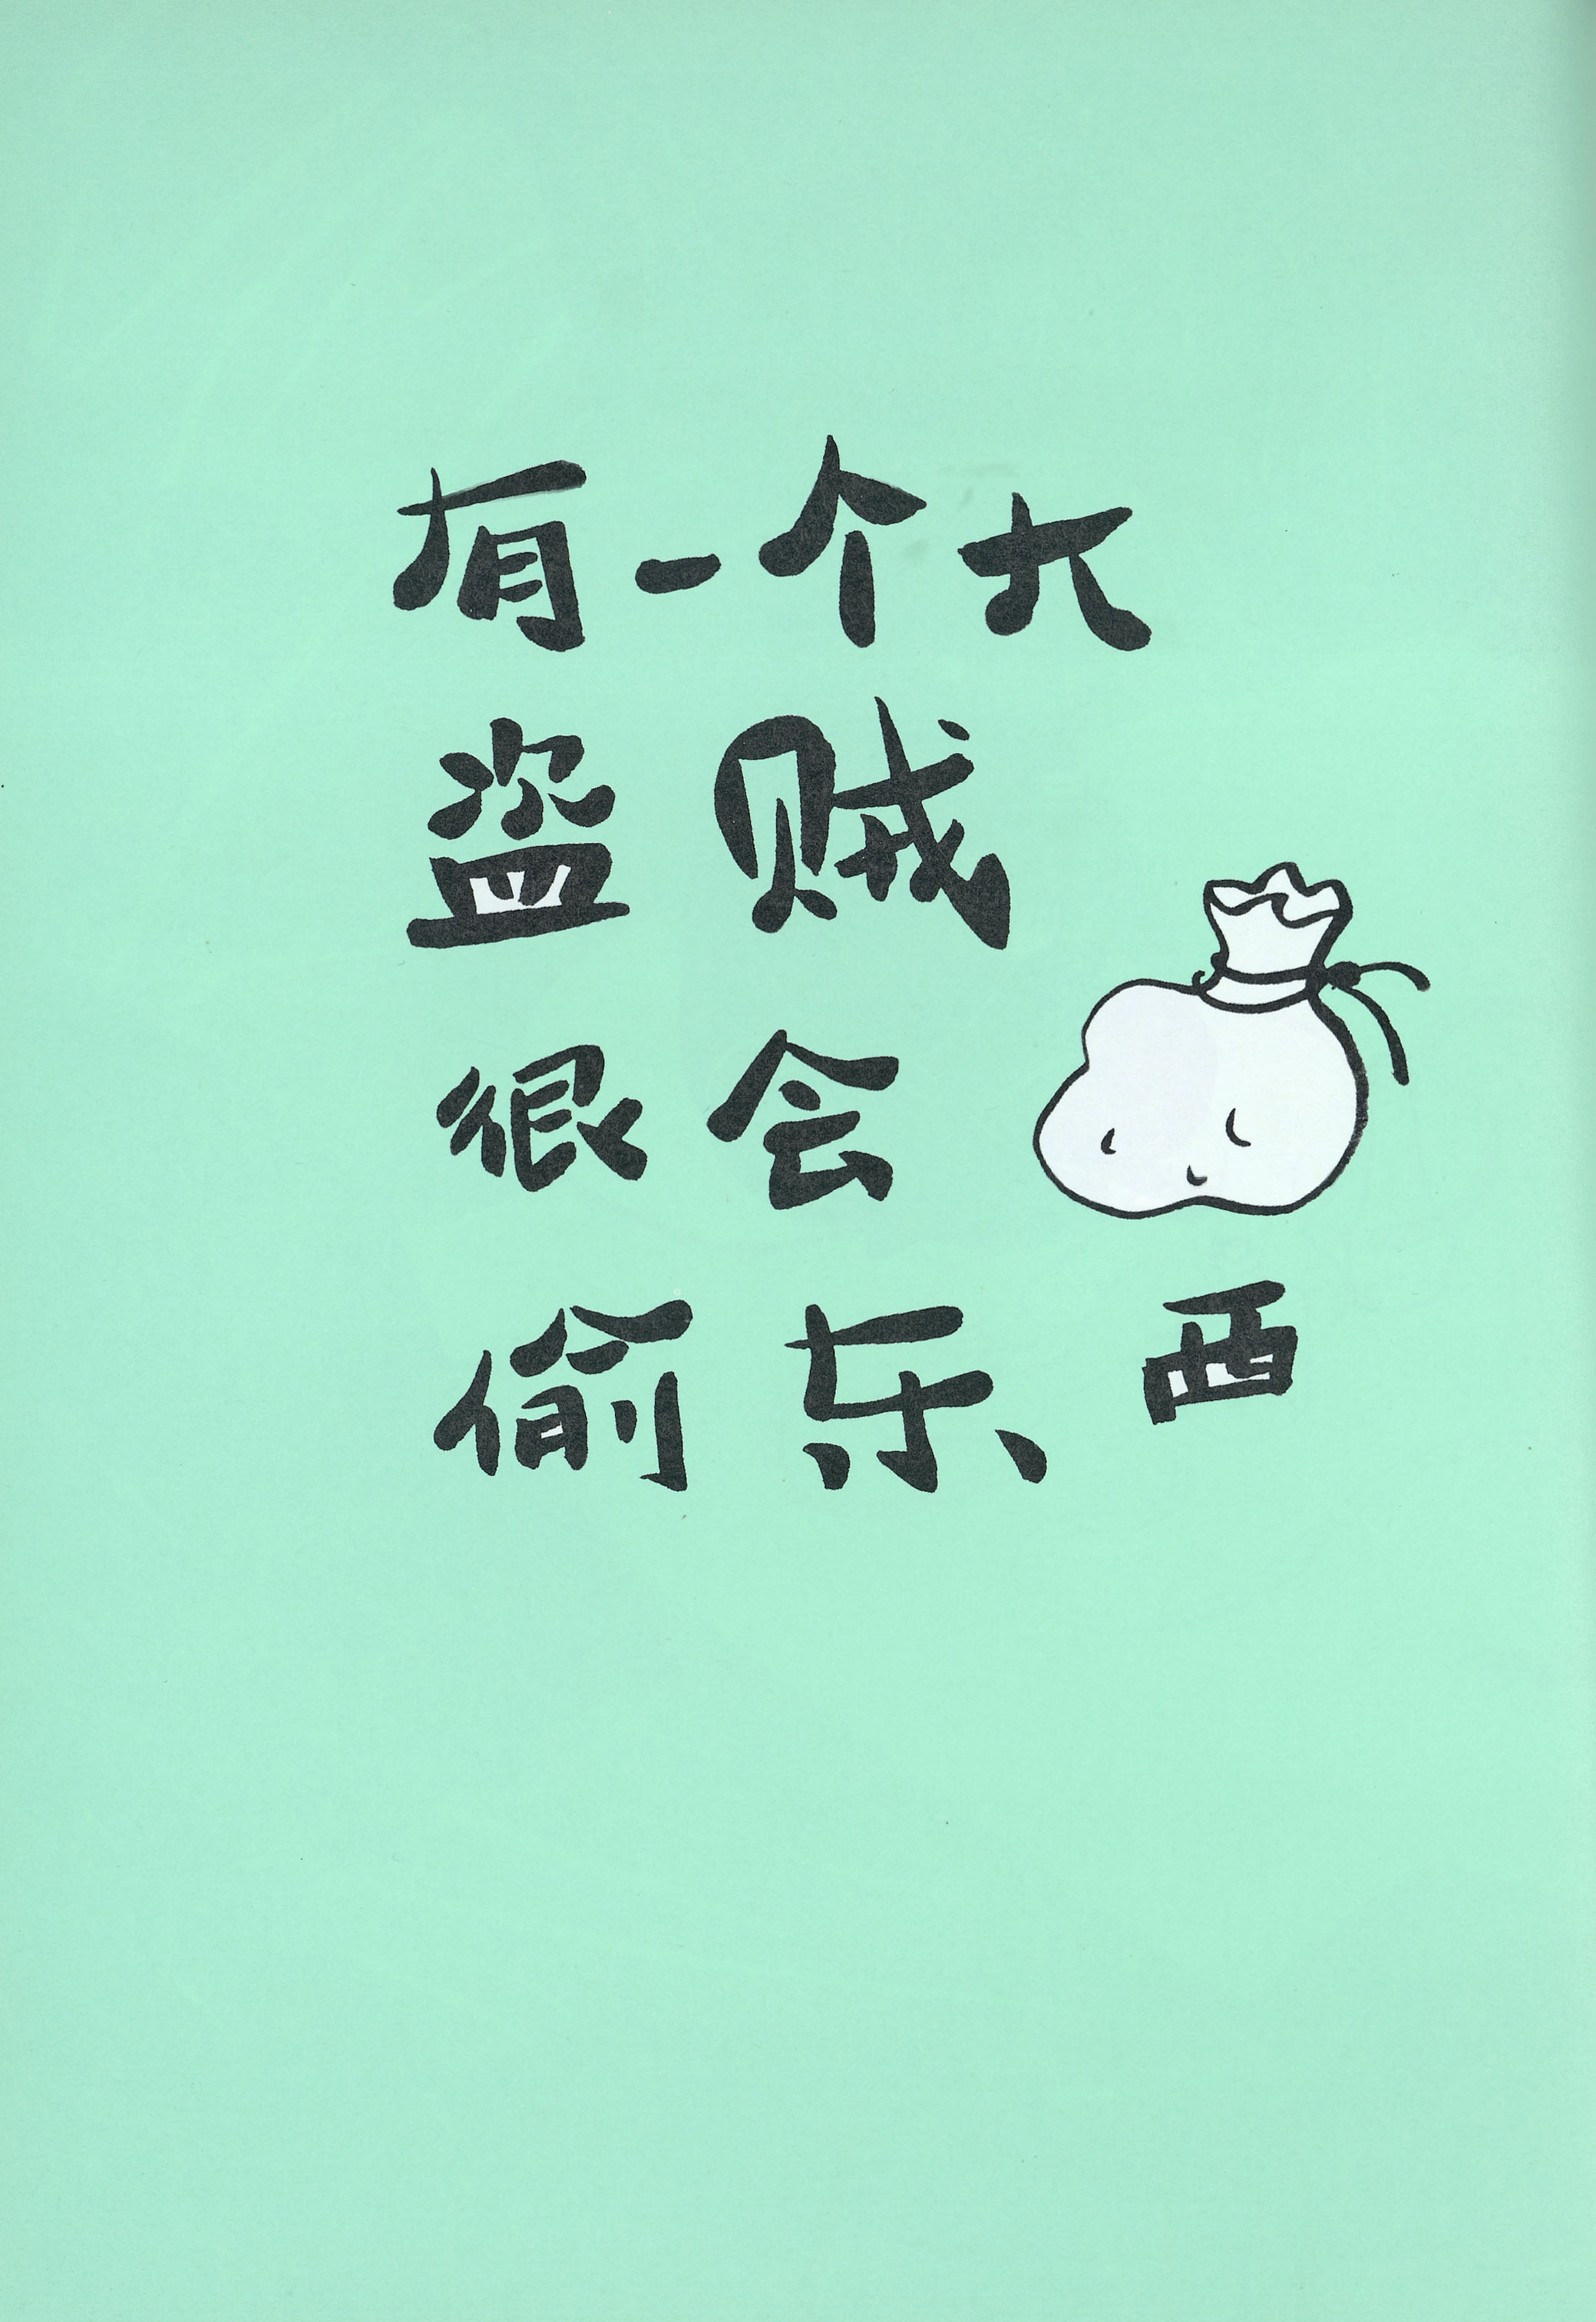 有一个大
盗贼
很会
偷东西